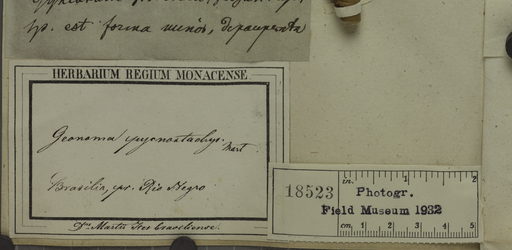 sp. est forma minor, depauperata
HERBARIUM REGIUM MONACENSE
Geonoma pycnostachys.
Mart
Brasilia, pr. Rio Negro
Dr. Martii Iter Brasiliense.
18523
in. 1 2
Photogr.
Field Museum 1932
cm. 1 2 3 4 5